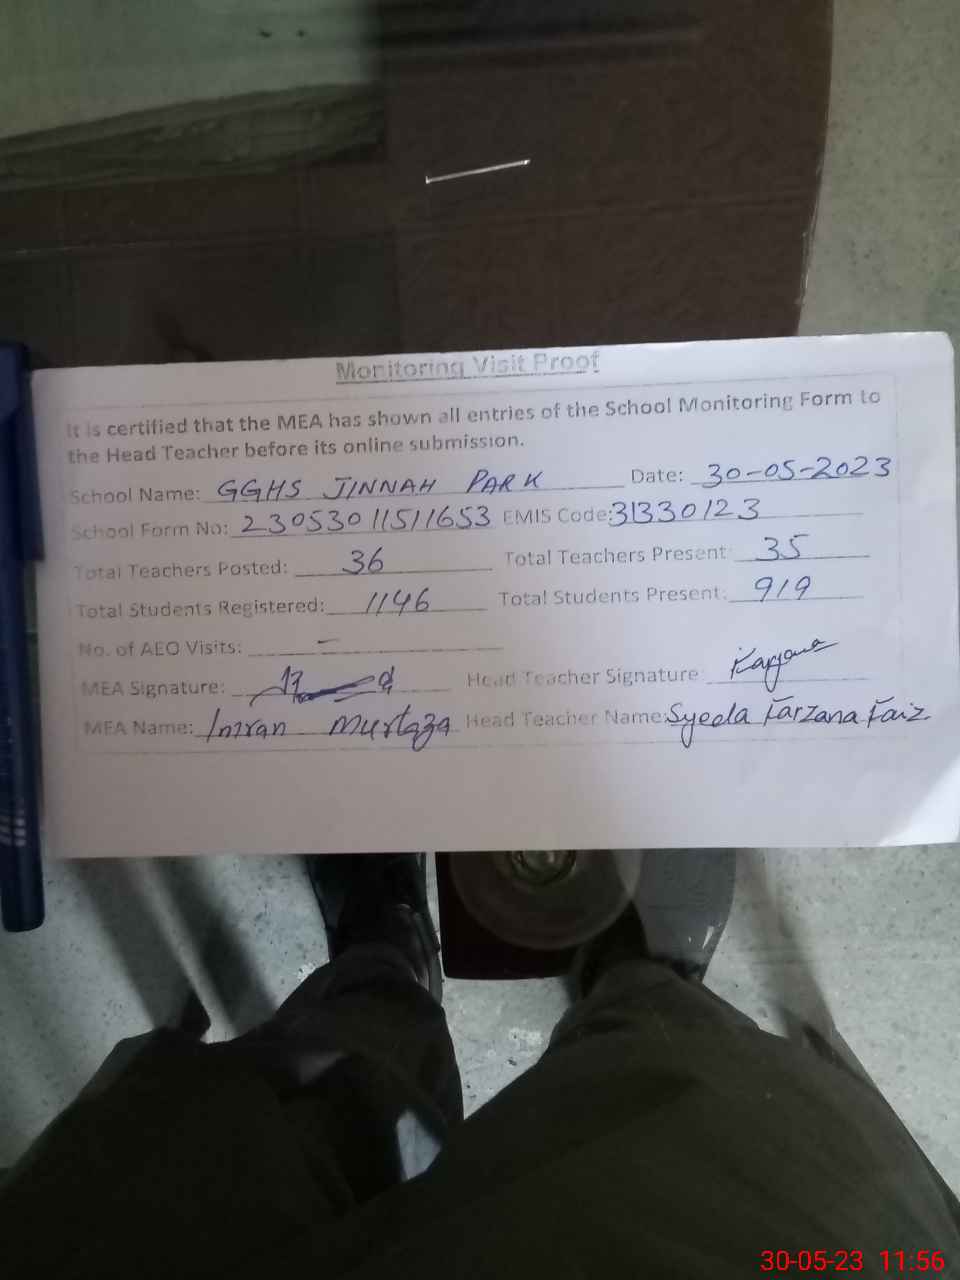 Monitoring Visit Proof
It is certified that the MEA has shown all entries of the School Monitoring Form to
the Head Teacher before its online submission.
School Name: GGHS JINNAH PARK Date: 30-05-2023
School Form No: 23053011511653 EMIS Code: 31330123
Total Teachers Posted: 36 Total Teachers Present: 35
Total Students Registered: 1146 Total Students Present: 919
No. of AEO Visits: -
MEA Signature: Head Teacher Signature: Farzana
MEA Name: Imran Murtaza Head Teacher Name: Syeda Farzana Faiz
30-05-23 11:56